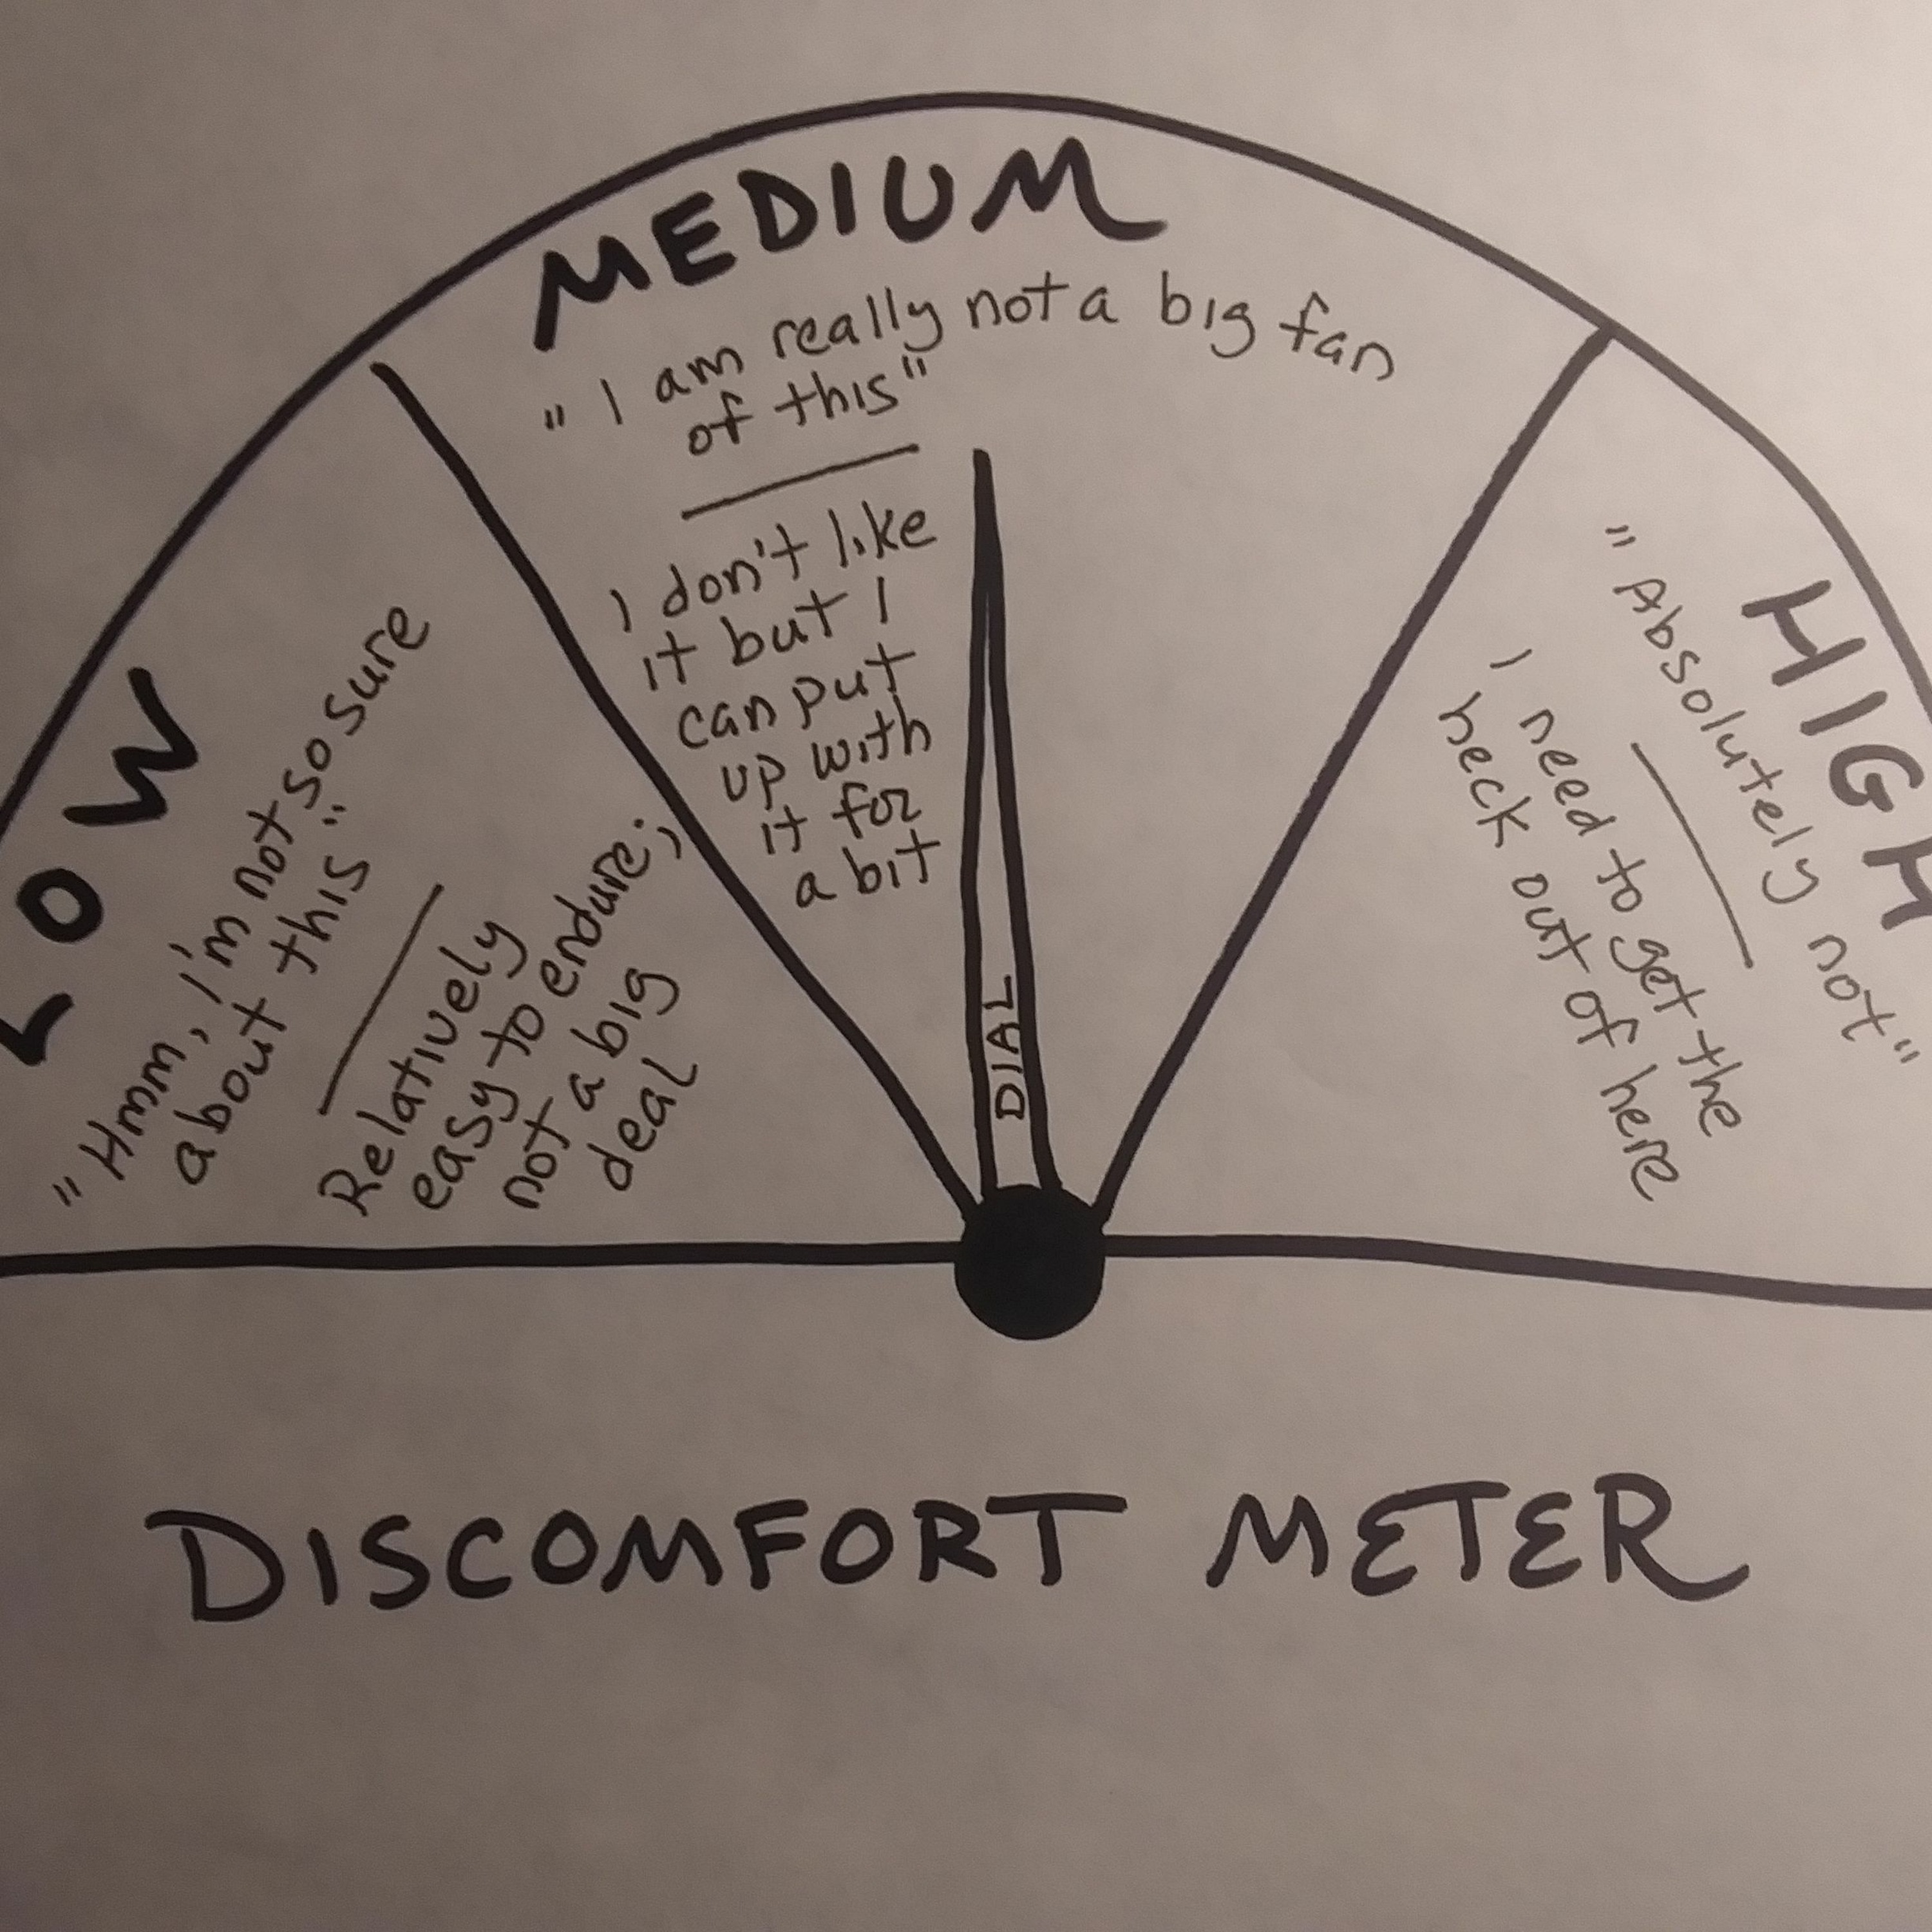 LOW
"Hmm, I'm not so sure
about this"
Relatively
easy to endure;
not a big
deal
MEDIUM
"I am really not a big fan
of this"
I don't like
it but I
can put
up with
it for
a bit
DIAL
HIGH
"Absolutely not"
I need to get the
heck out of here
DISCOMFORT METER